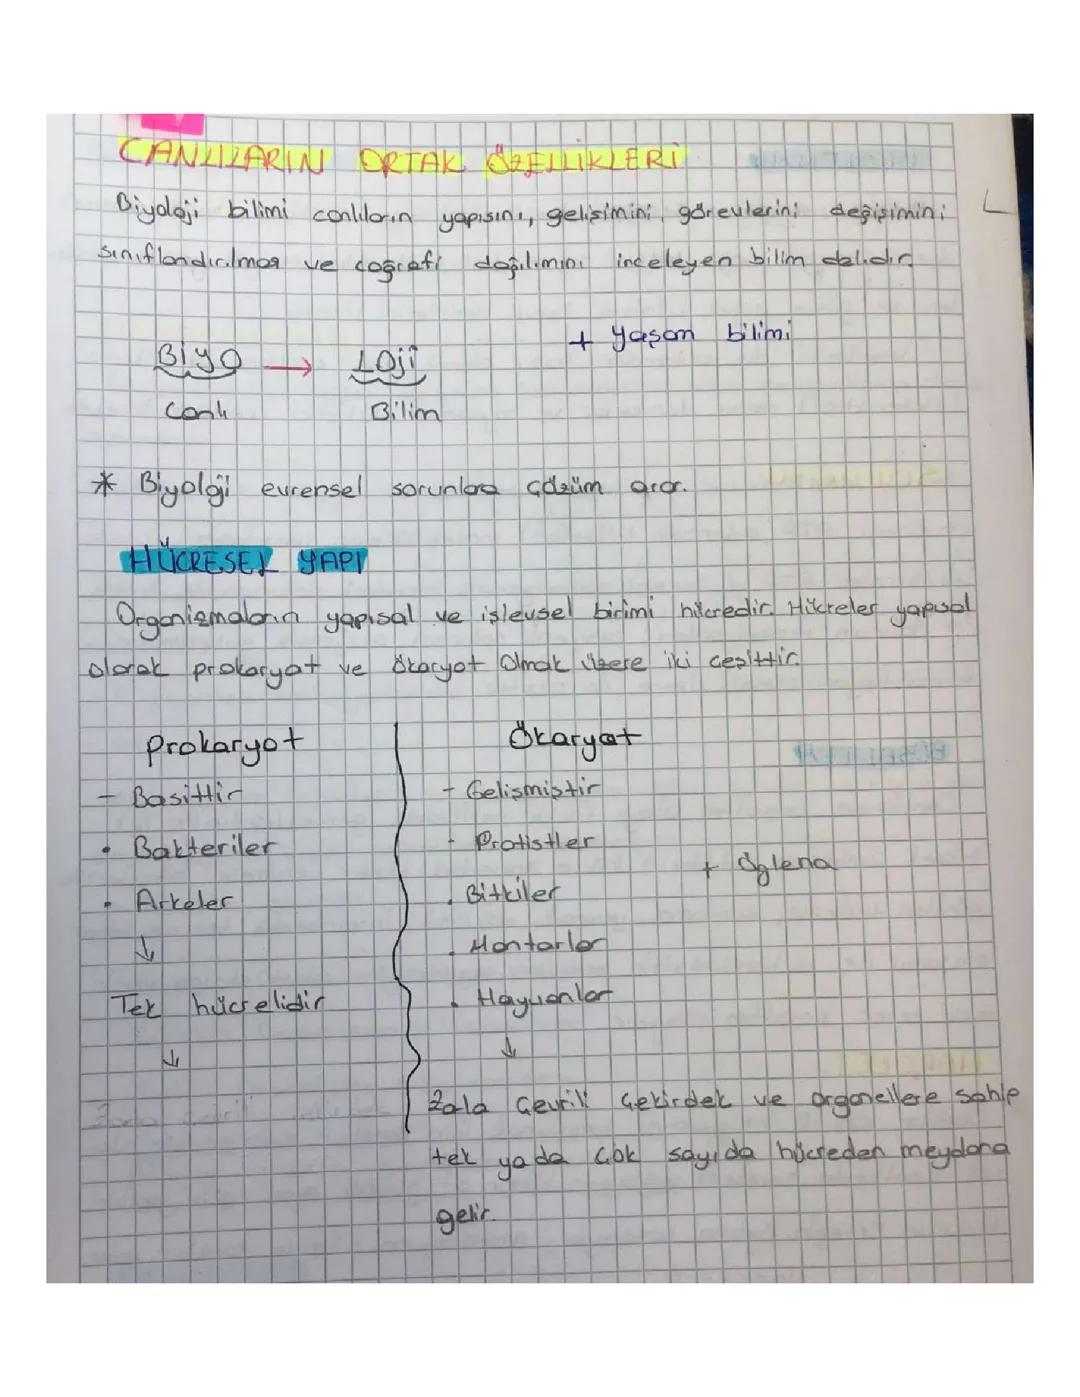 CANLILARIN ORTAK ÖZELLİKLERİ
Biyoloji bilimi canlıların yapısını, gelişimini, görevlerini değişimini
sınıflandırılması ve coğrafi dağılımını inceleyen bilim dalıdır.
+ Yaşam bilimi
Biyo → Loji
Canlı Bilim
* Biyoloji evrensel sorunlara çözüm arar.
HÜCRESEL YAPI
Organizmaların yapısal ve işlevsel birimi hücredir. Hücreler yapısal
olarak prokaryot ve ökaryot olmak üzere iki çeşittir.
Prokaryot
- Basittir
• Bakteriler
• Arkeler
↓
Tek hücrelidir
↓
Ökaryot
- Gelişmiştir
- Protistler + Öglena
• Bitkiler
• Mantarlar
• Hayvanlar
↓
Zarla çevrili çekirdek ve organellere sahip
tek yada çok sayıda hücreden meydana
gelir.